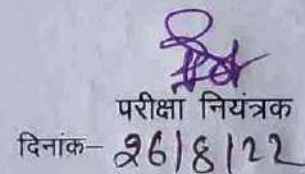 परीक्षा नियंत्रक
दिनांक– 26/8/22